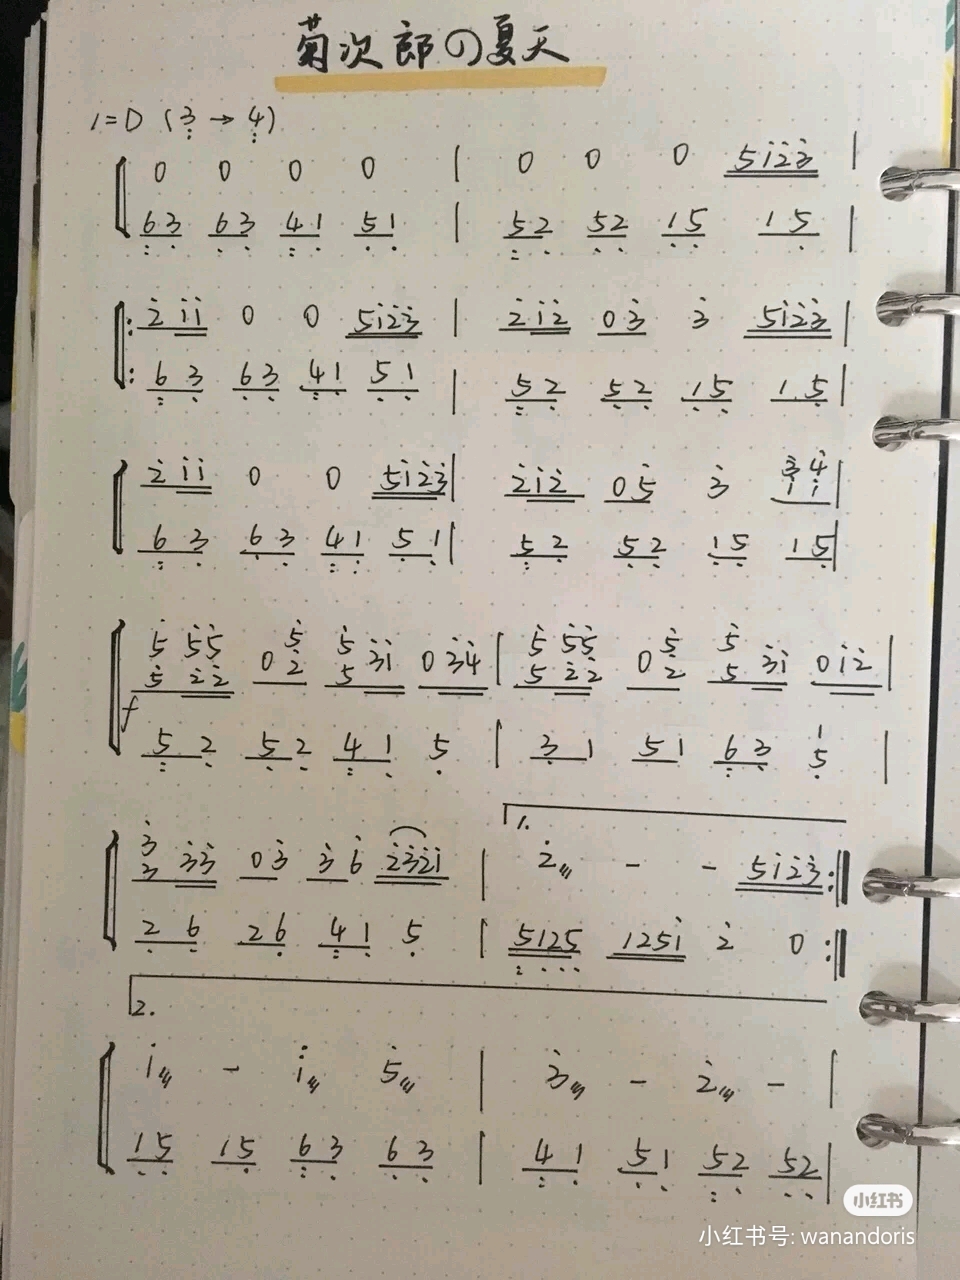 菊次郎の夏天
1=D (3̣ → 4̣)
0 0 0 0 | 0 0 0 5i̇2̇3̇ |
63 63 41 51 | 52 52 15 15 |
2̇i̇i̇ 0 0 5i̇2̇3̇ | 2̇i̇2̇ 03̇ 3̇ 5i̇2̇3̇ |
63 63 41 51 | 52 52 15 15 |
2̇i̇i̇ 0 0 5i̇2̇3̇ | 2̇i̇2̇ 05̇ 3̇ 3̇4̇
i̇i̇ |
63 63 41 51 | 52 52 15 15 |
5̇ 5̇5̇ 5̇ 5̇ | 5̇ 5̇5̇ 5̇ 5̇
5̇ 2̇2̇ 0 2̇ 5 3̇i̇ 03̇4̇ | 5 2̇2̇ 0 2 5 3̇i̇ 0i̇2̇ |
f
52 52 41 5 | 31 51 63 1
5 |
1.
3̇
3 3̇3̇ 03̇ 3̇6̇ 2̇3̇2̇i̇ | 2̇ - - 5i̇2̇3̇ :|
26 26 41 5 | 5125 125i̇ 2̇ 0 :|
2.
i̇ - i̇ 5̇ | 3̇ - 2̇ - |
15 15 63 63 | 41 51 52 52 |
小红书
小红书号: wanandoris